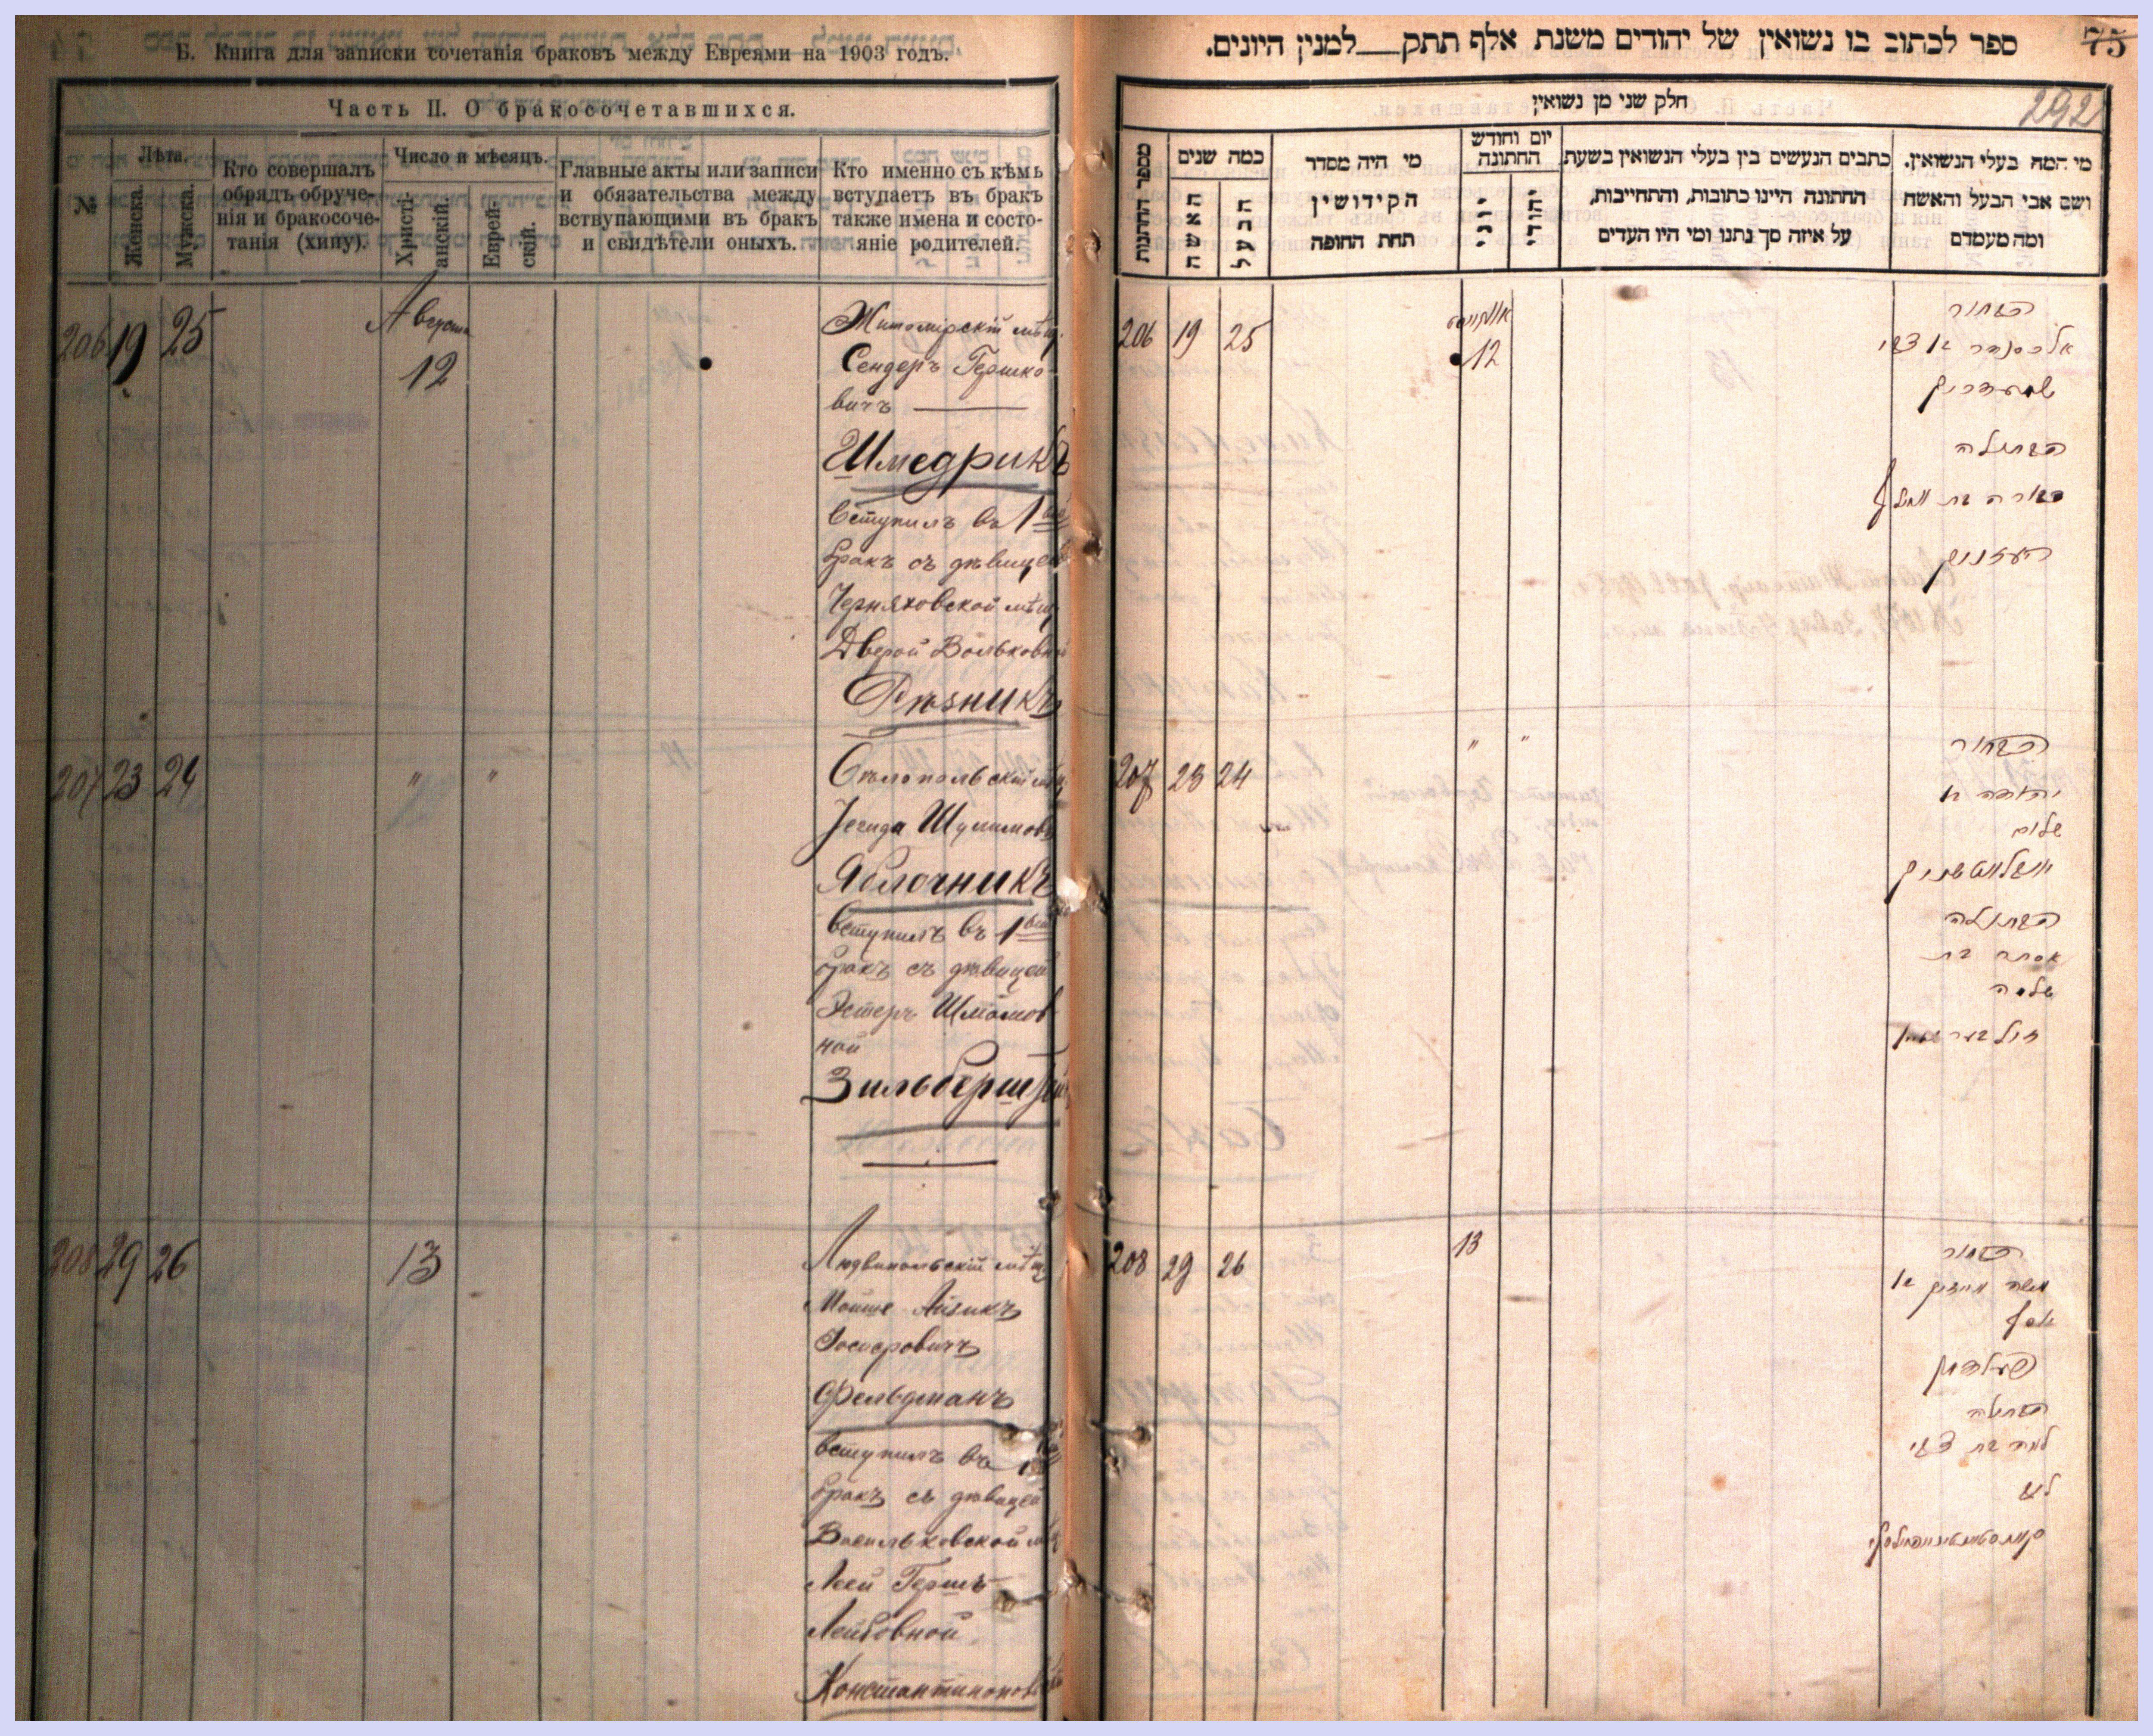 Б. Книга для записки сочетанія браковъ между Евреями на 1903 годъ.
Часть II. О бракосочетавшихся.
№
Лѣта.
Женска.
Мужска.
Кто совершалъ
обрядъ обруче-
нія и бракосоче-
танія (хипу).
Число и мѣсяцъ.
Христі-
анскій.
Еврей-
скій.
Главные акты или записи
и обязательства между
вствупающими въ бракъ
и свидѣтели оныхъ.
Кто именно съ кѣмь
вступаетъ въ бракъ
также имена и состо-
яніе родителей.
206 19 25
Августа
12
Житомірскій мѣщ.
Сендеръ Гершко-
вичъ
Шмедрикъ
вступилъ въ 1
бракъ съ дѣвицей
Черняховской мѣщ
Дверой Вольковной
Рѣзникъ
207 23 24 " "
Іегуда Шулимовъ
Яблочникъ
вступилъ въ 1вый
бракъ съ дѣвицей
Эстеръ Шлiомов
ной
Зильберштейнъ
208 29 26 13
Людвипольскій мѣщ
Мойше Айзикъ
Іосифовичъ
Фельдманъ
вступилъ въ 1
бракъ съ дѣвицей
Васильковской мѣщ
Леей Гершъ-
Лейбовной
ספר לכתוב בו נשואין של יהודים משנת אלף תתק למנין היונים.
75
292
חלק שני מן נשואין
מספר החתנות
כמה שנים
האשה
הבעל
מי היה מסדר
הקידושין
תחת החופה
יום וחודש
החתונה
יוני
יהודי
כתבים הנעשים בין בעלי הנשואין בשעת
החתונה היינו כתובות, והתחייבות,
על איזה סך נתנו ומי היו העדים
מי המה בעלי הנשואין.
ושם אבי הבעל והאשה
ומה מעמדם
206 19 25
אויגוסט
12
הבחור
אלכסנדר בן צבי
שמעדריק
הבתולה
רעזניק
207 23 24 " "
הבחור
יהודה בן
שלום
יאבלאטשניק
הבתולה
אסתר בת
שלמה
זילבערשטיין
208 29 26 13
הבחור
משה אייזיק בן
יוסף
פעלדמאן
הבתולה
לאה בת צבי
ליב